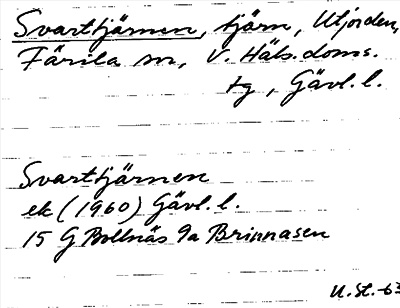 Svarttjärnen, tjärn, Utjorden,
Färila sn, V. Häls. doms.
tg, Gävl. l.
Svarttjärnen
ek (1960) Gävl. l.
15 G Bollnäs 9a Brinnasen
U. St. -63